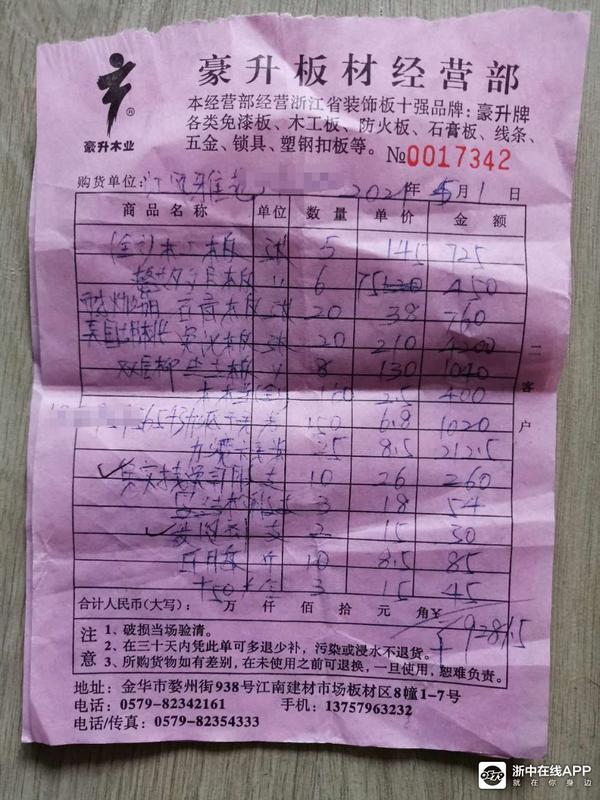 豪升板材经营部
豪升木业
®
本经营部经营浙江省装饰板十强品牌：豪升牌
各类免漆板、木工板、防火板、石膏板、线条、
五金、锁具、塑钢扣板等。 №0017342
购货单位： 2021年5月1日
商品名称 单位 数量 单价 金额
木工板 张 5 145 725
6 75 450
石膏板 张 20 38 760
张 20 210 4200
生态板 8 130 1040
2.5 400
150 6.8 1020
25 8.5 212.5
支 10 26 260
3 18 54
支 2 15 30
斤 10 8.5 85
3 15 45
二客户
合计人民币(大写)： 万 仟 佰 拾 元 角¥ 9281.5
注意
1、破损当场验清。
2、在三十天内凭此单可多退少补，污染或浸水不退货。
3、所购货物如有差别，在未使用之前可退换，一旦使用，恕难负责。
地址：金华市婺州街938号江南建材市场板材区8幢1-7号
电话：0579-82342161 手机：13757963232
电话/传真：0579-82354333
浙中在线APP
就在你身边